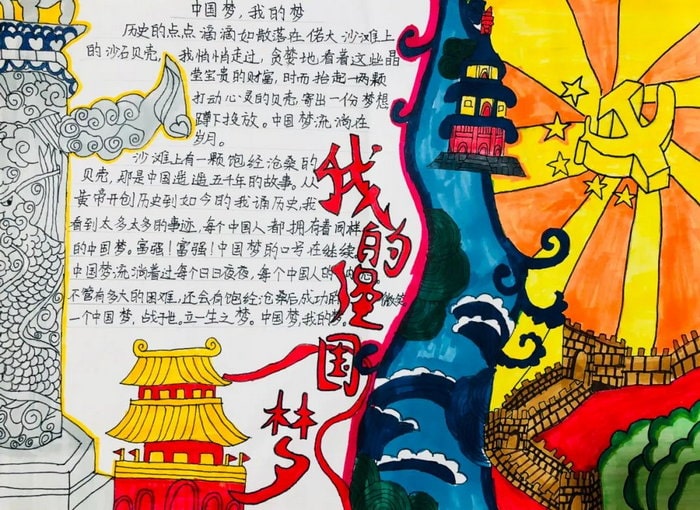 中国梦,我的梦
历史的点点滴滴如散落在偌大沙滩上
的沙石贝壳,我悄悄走过,贪婪地看着这些晶
莹宝贵的财富,时而抬起一两颗
打动心灵的贝壳,寄出一份梦想
蹲下投放。中国梦流淌在
岁月。
沙滩上有一颗饱经沧桑的
贝壳,那是中国遥遥五千年的故事。从
黄帝开创历史到如今的我诵历史我
看到太多太多的事迹,每个中国人都拥有着同样
的中国梦。富强!富强!中国梦的口号在继续
中国梦流淌着过每个日日夜夜,每个中国人的
不管有多大的困难,还会有饱经沧桑后成功的微笑
一个中国梦,占于世。立一生之梦。中国梦,我的梦。
我的国梦